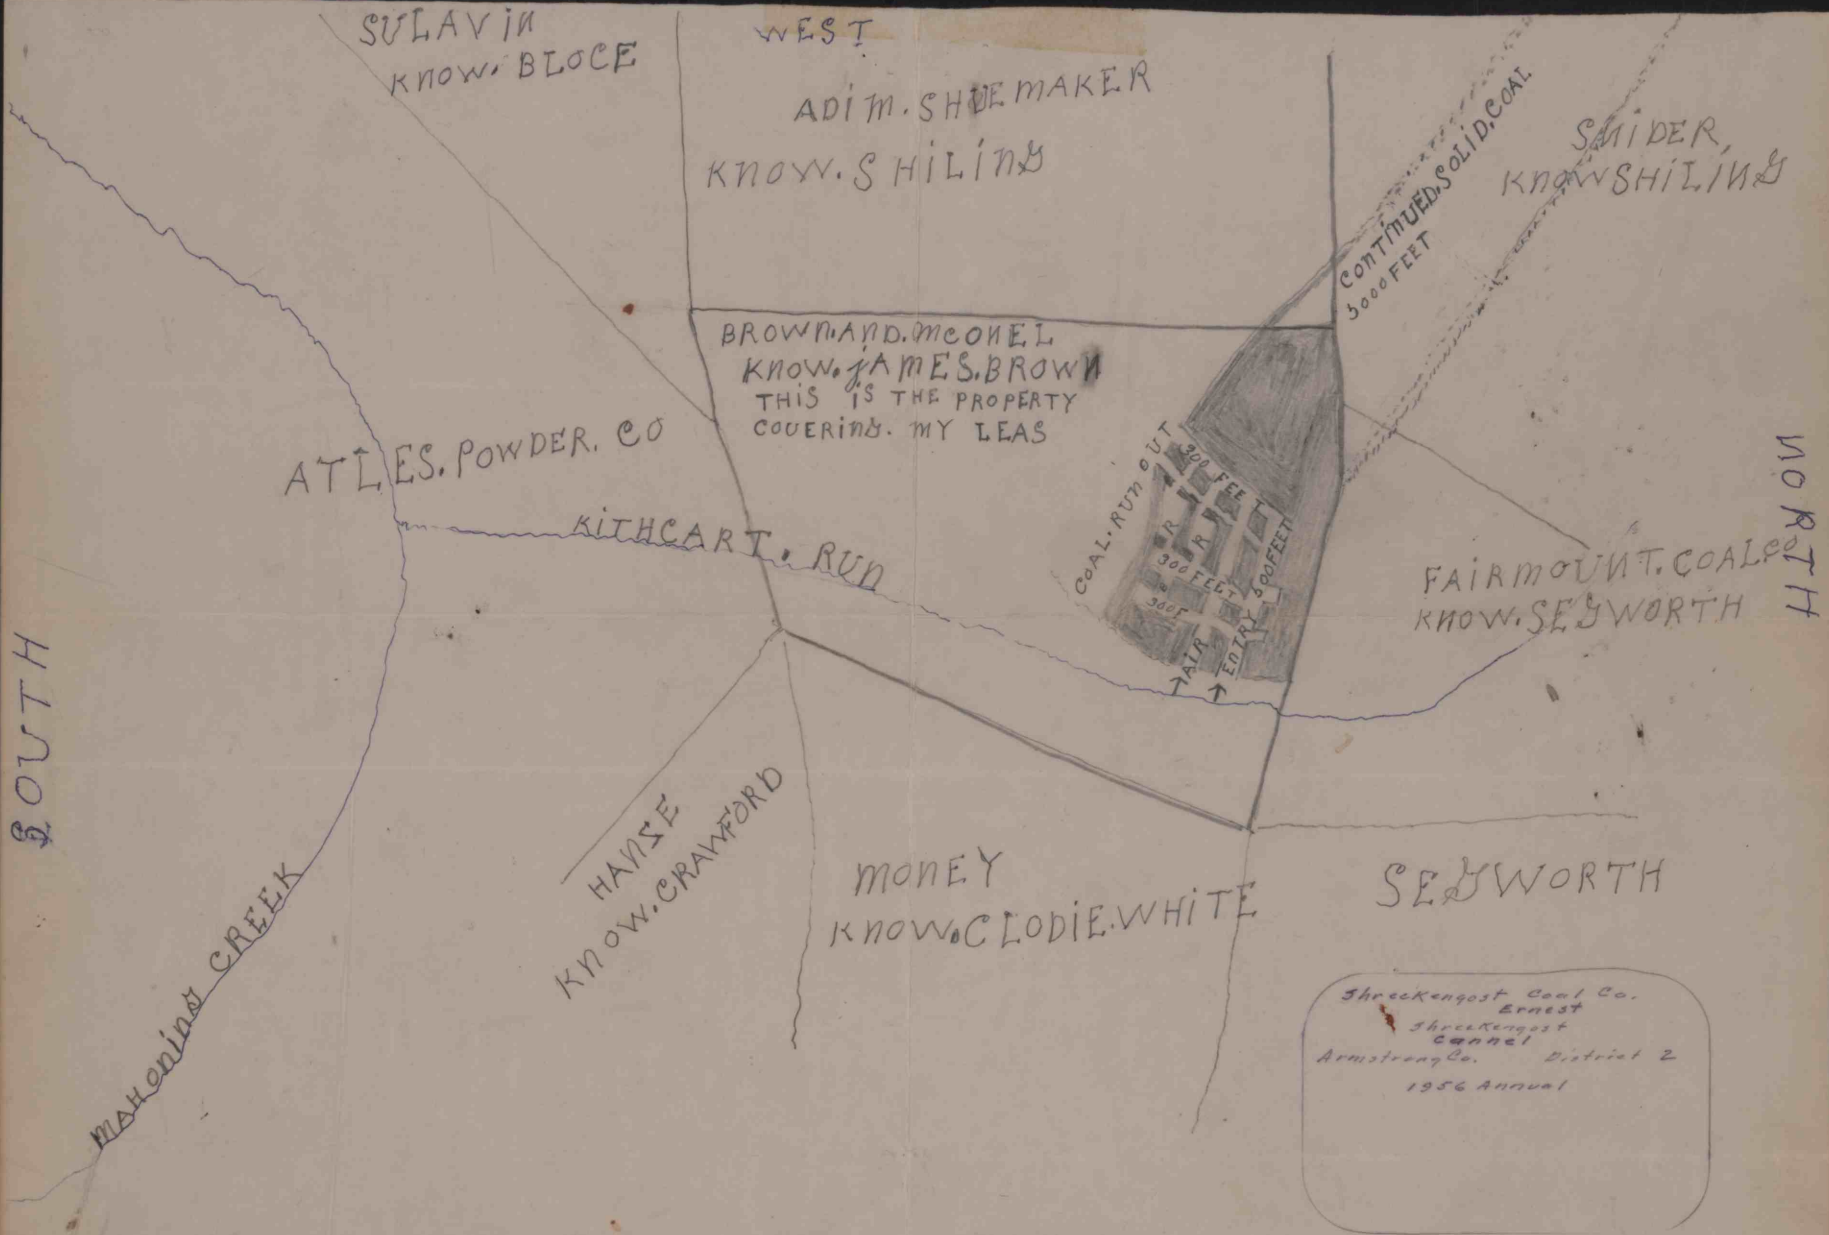 SULAVIN
KNOW. BLOCE
WEST
ADIM. SHUEMAKER
KNOW. SHILING
CONTINUED. SOLID. COAL
3000 FEET
SNIDER,
KNOW SHILING
BROWN. AND. MCONEL
KNOW. JAMES. BROWN
THIS IS THE PROPERTY
COVERING. MY LEAS
ATLES. POWDER. CO
KITHCART. RUN
COAL. RUN OUT
300 FEET
R
R
300 FEET
300F
500 FEET
AIR
ENTRY
FAIRMOUNT. COAL. CO
KNOW. SEGWORTH
NORTH
SOUTH
HANSE
KNOW. CRAWFORD
MONEY
KNOW. CLODIE. WHITE
SEGWORTH
MAHONING CREEK
Shreckengost Coal Co.
Ernest
Shreckengost
Cannel
Armstrong Co. District 2
1956 Annual